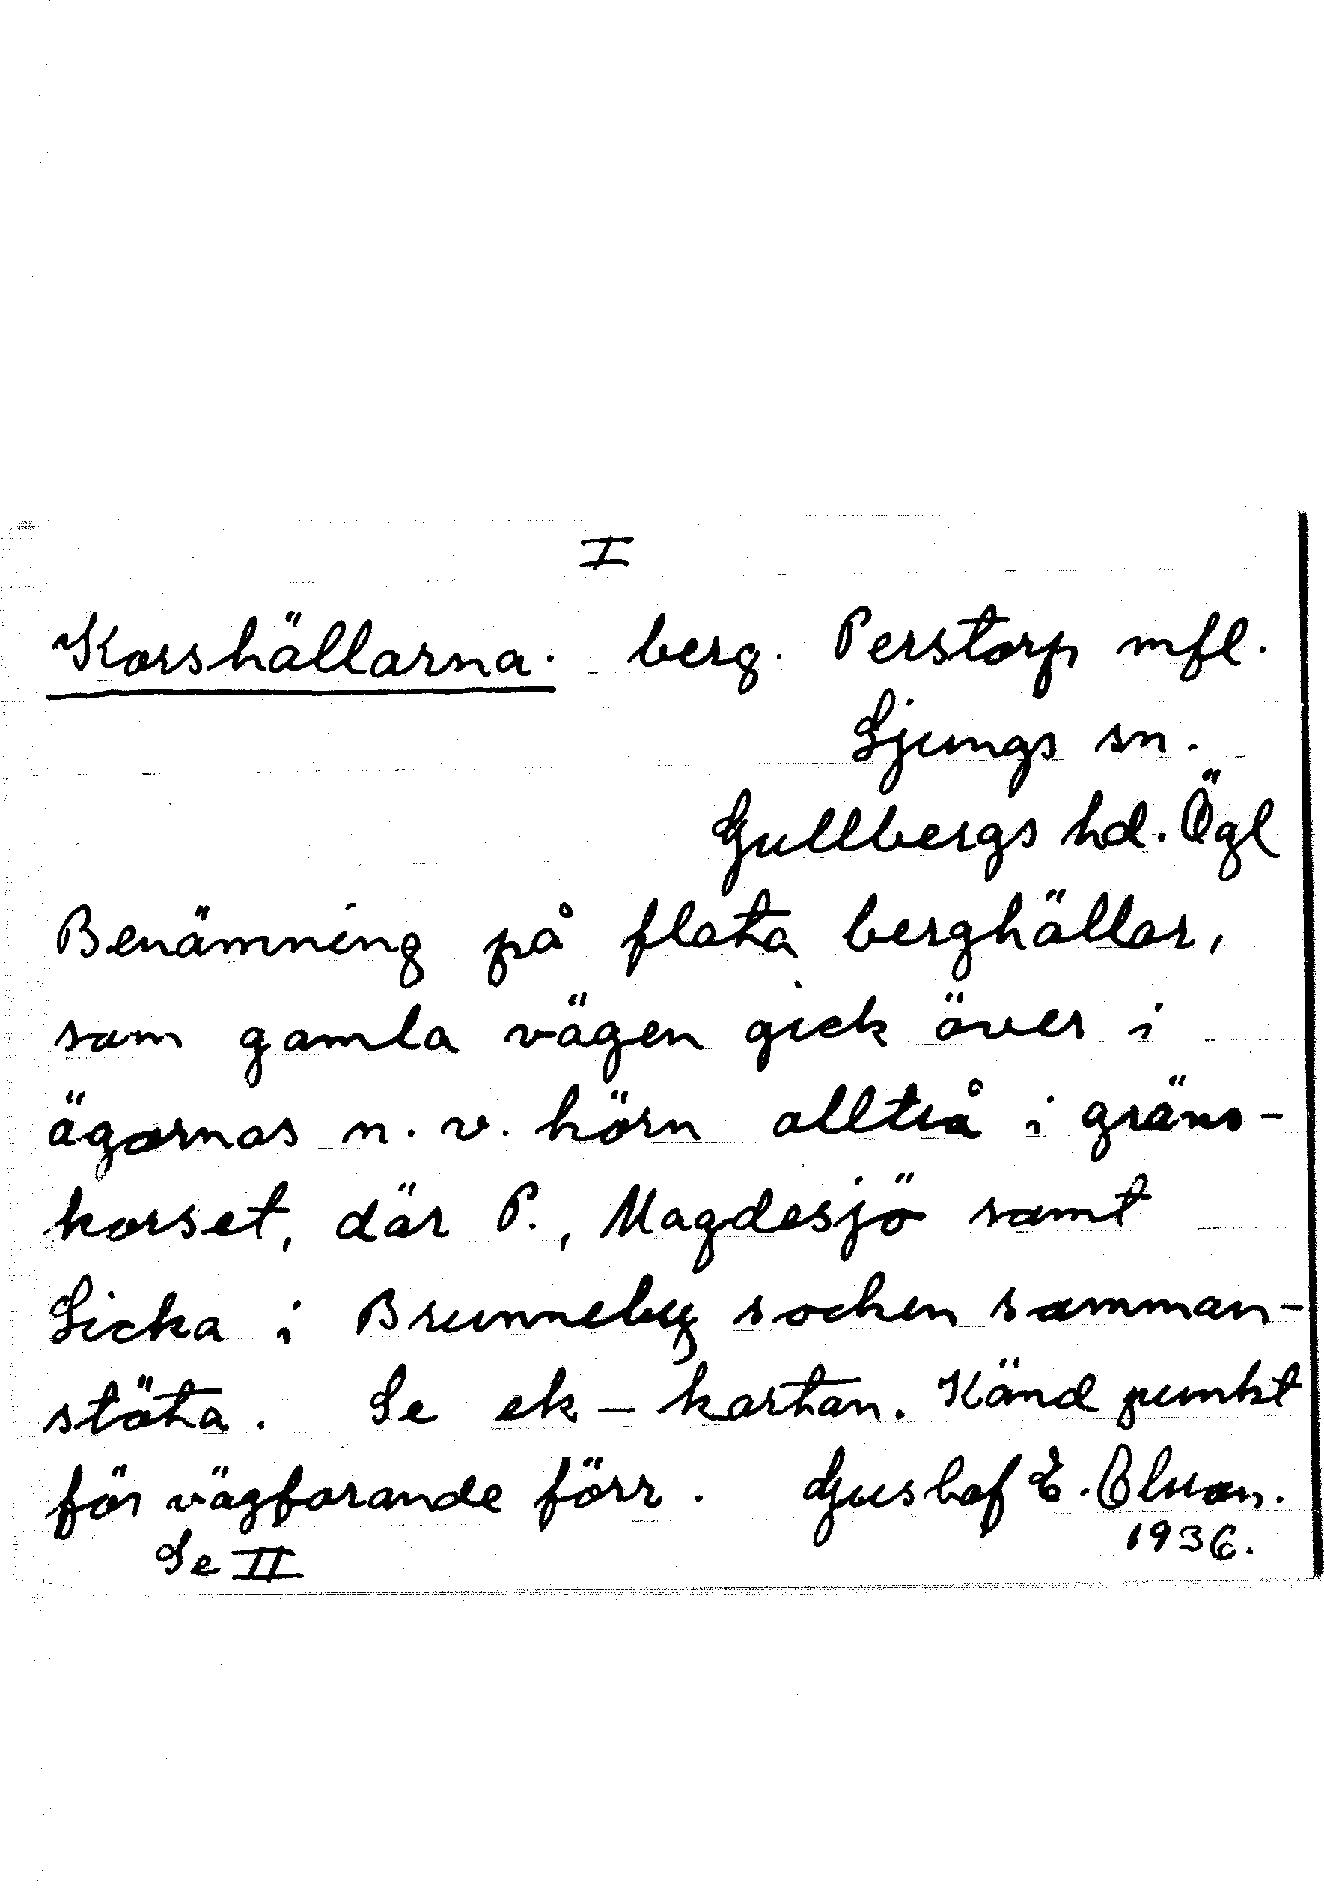 I
Korshällarna. berg. Perstorp mfl.
Ljungs sn.
Gullbergs hd. Ögl
Benämning på flata berghällar,
som gamla vägen gick över i
ägornas n.v. hörn alltså i gräns-
korset, där P., Magdesjö samt
Licka i Brunneby socken samman-
stöta. Se ek-kartan. Känd punkt
för vägfarande förr. Gustaf E. Olsson.
Se II 1936.